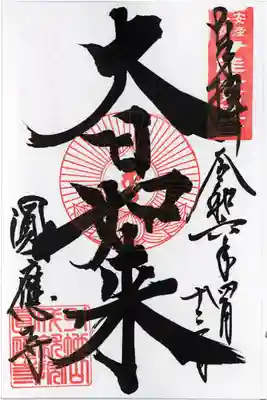 奉拝
令和六年四月十三日
大日如来
圓應寺